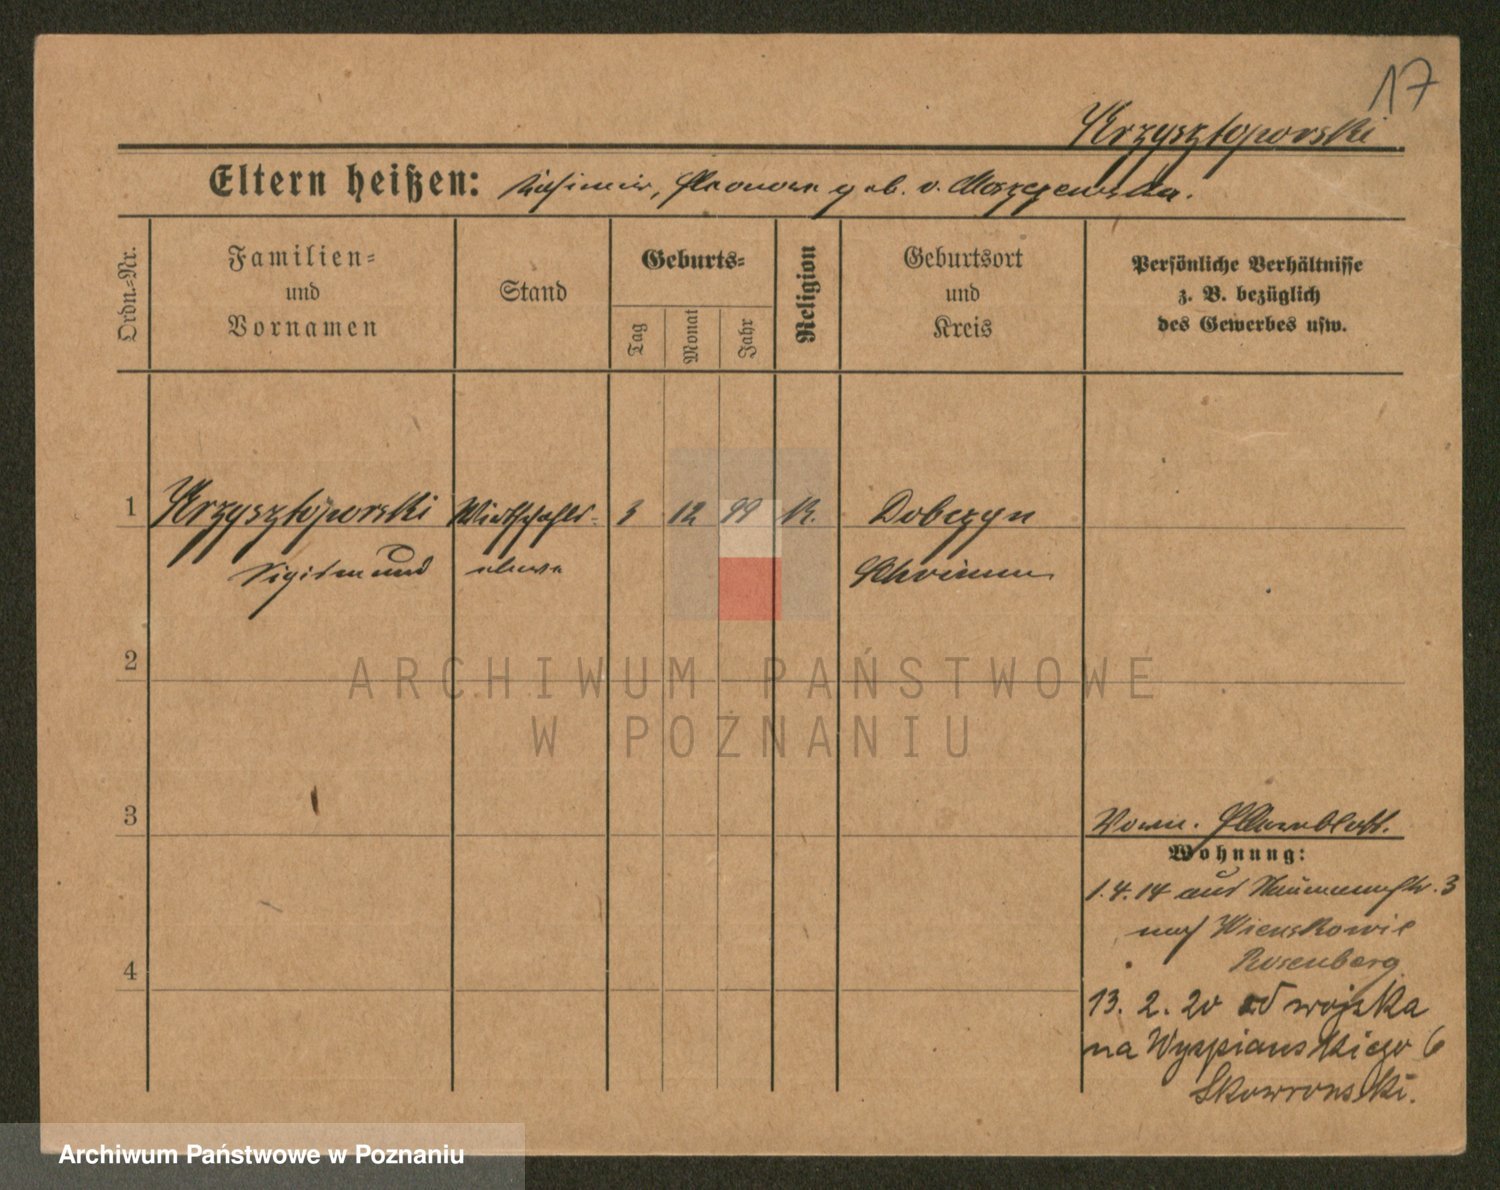 17
Krzysztoporski
Eltern heißen: Kasimir, Eleonore geb. v. Moszczenska.
Ordn.-Nr.
Familien-
und
Vornamen
Stand
Geburts-
Tag
Monat
Jahr
Religion
Geburtsort
und
Kreis
Persönliche Verhältnisse
z. B. bezüglich
des Gewerbes usw.
1 Krzysztoporski Wirtschafts- 3 12 99 K. Dobczyn
Sigismund eleve Schrimm
2
ARCHIWUM PAŃSTWOWE
W POZNANIU
3
Wohnung:
1.4.14 aus Naumannstr. 3
nach
Rosenberg
4
13. 2. 20 od wojska
na Wyspianskiego 6
Skowronski.
Archiwum Państwowe w Poznaniu